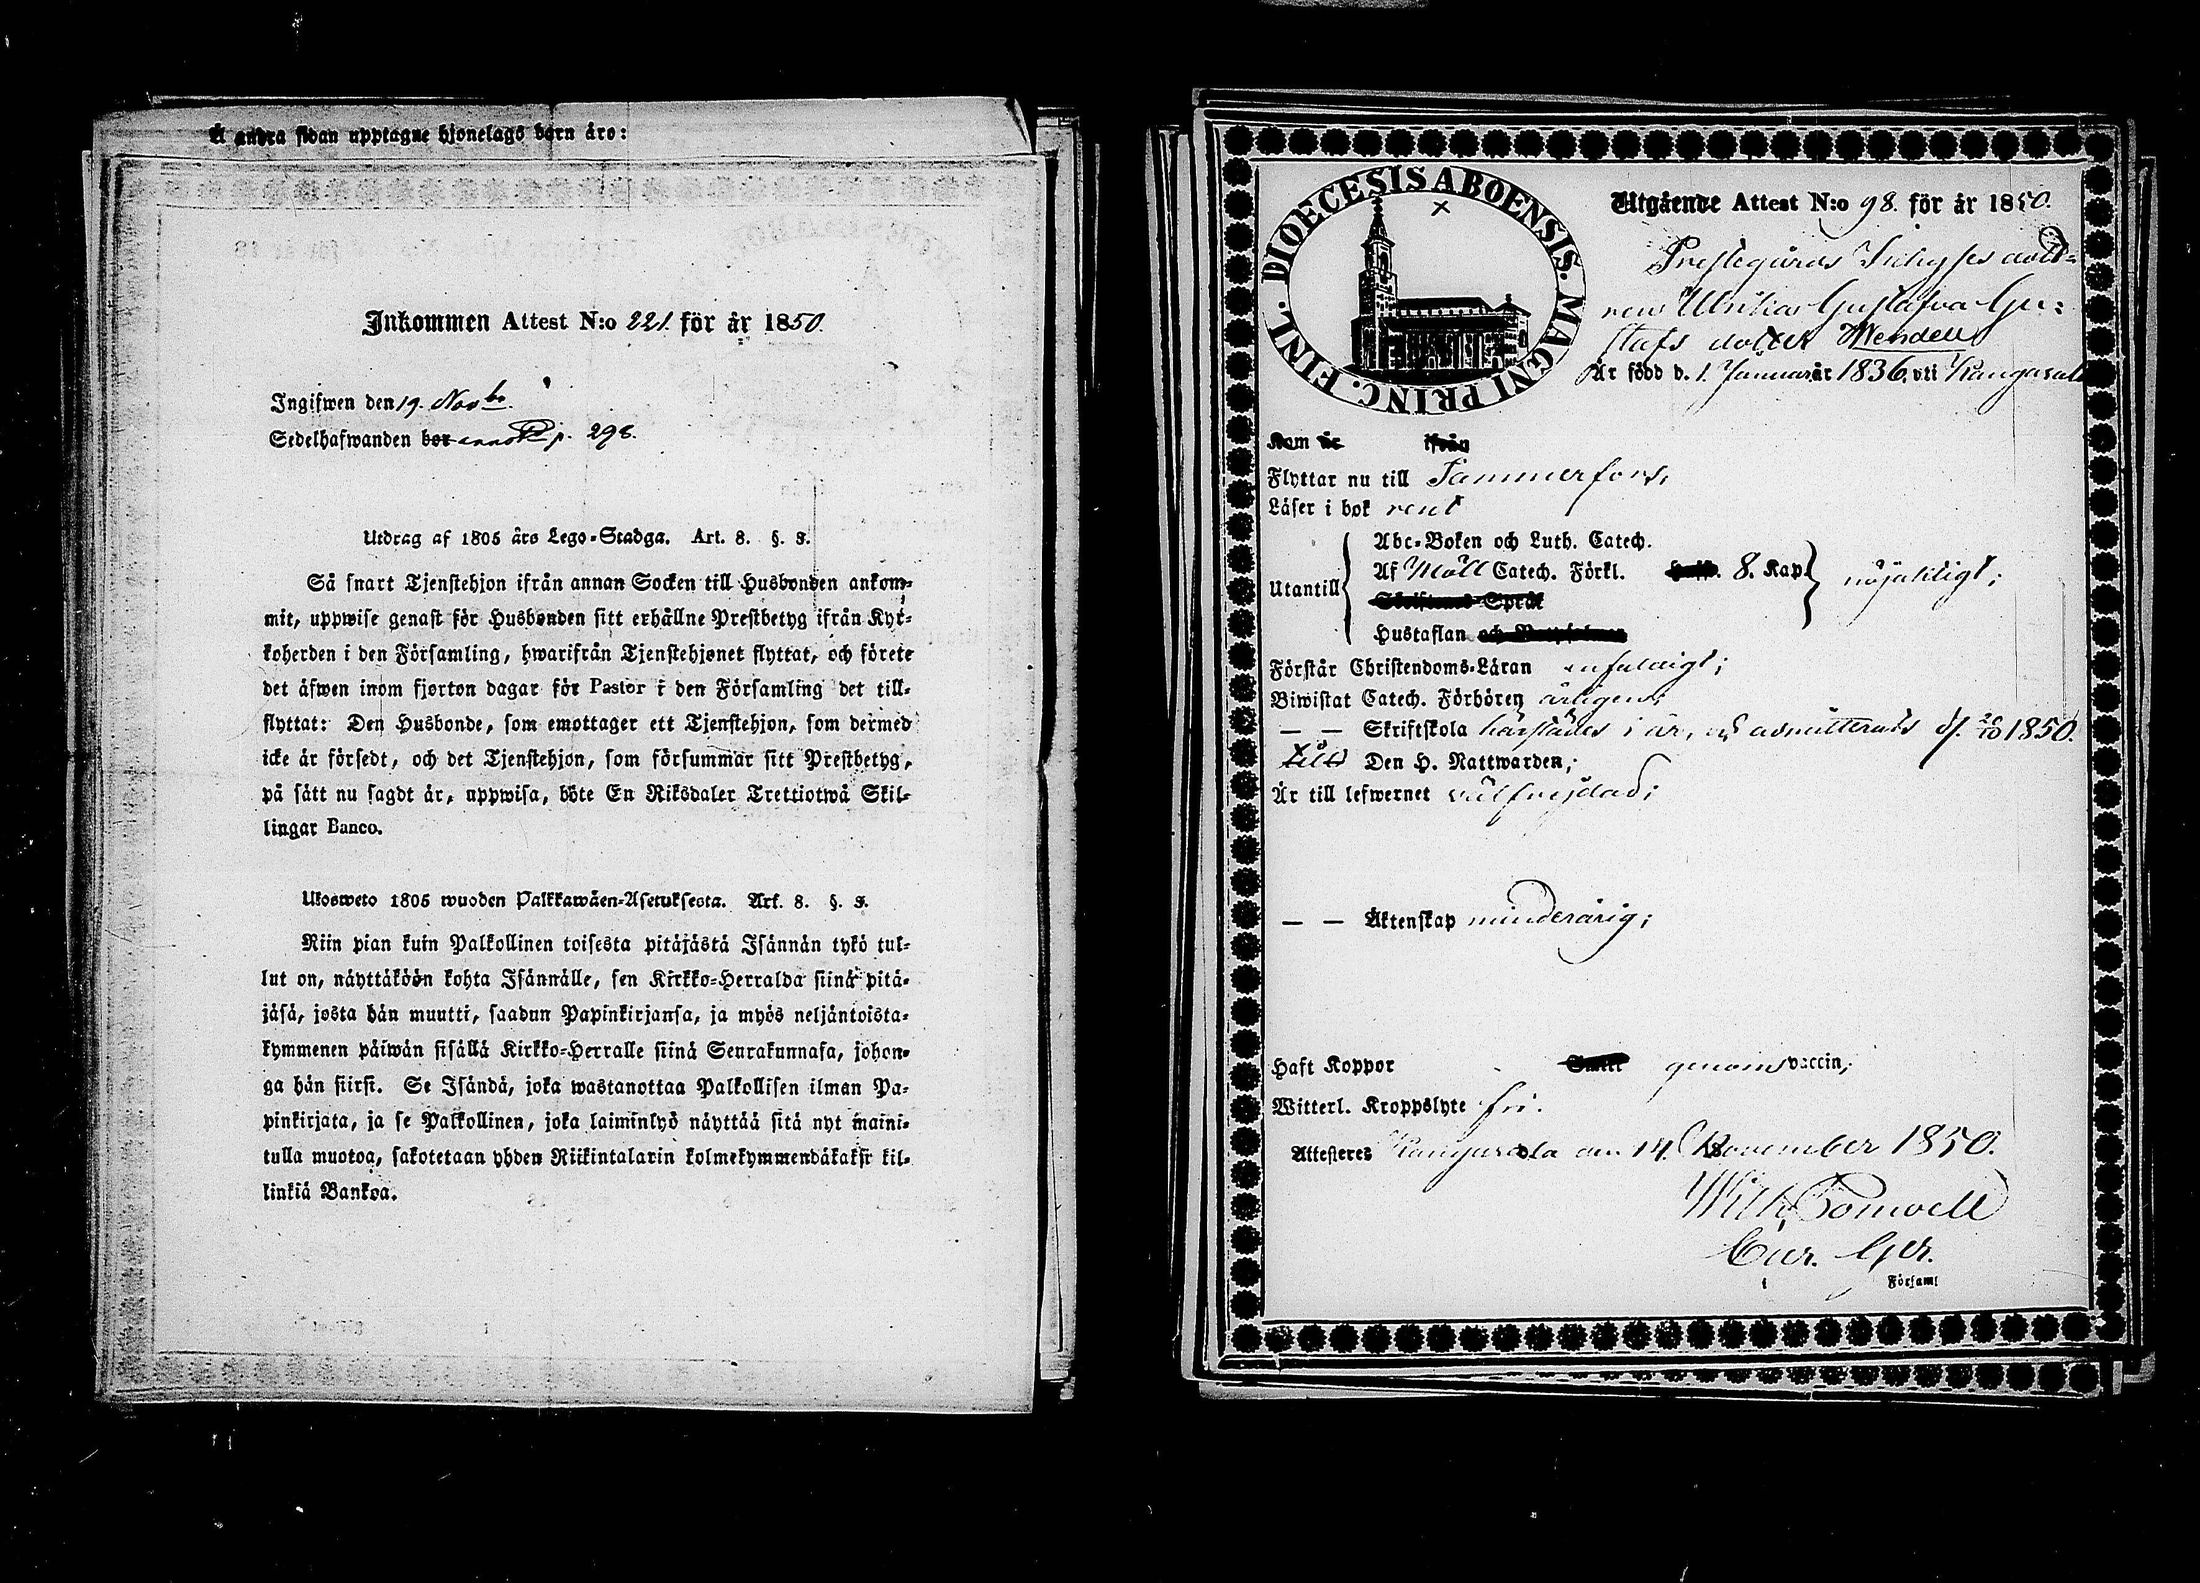 Å andra sidan upptagne hjonelags barn äro:
Inkommen Attest N:o 221. för år 1850.
Ingifwen den 19. Novbr.
Sedelhafwanden bor annot. p. 298.
Utdrag af 1805 års Lego-Stadga. Art. 8. §. 3.
Så snart Tjenstehjon ifrån annan Socken till Husbonden ankom-
mit, uppwise genast för Husbonden sitt erhållne Prestbetyg ifrån Kyr-
koherden i den Församling, hwarifrån Tjenstehjonet flyttat, och förete
det äfwen inom fjorton dagar för Pastor i den Församling det till-
flyttat: Den Husbonde, som emottager ett Tjenstehjon, som dermed
icke är försedt, och det Tjenstehjon, som försummar sitt Prestbetyg,
på sätt nu sagdt är, uppwisa, böte En Riksdaler Trettiotwå Skil-
lingar Banco.
Ukosweto 1805 wuoden Palkkawäen-Asetuksesta. Art. 8. §. 3.
Niin pian kuin Palkollinen toisesta pitäjästä Isännän tykö tul-
lut on, näyttäköön kohta Isännälle, sen Kirkko-Herralda siinä pitä-
jäsä, josta hän muutti, saadun Papinkirjansa, ja myös neljäntoista-
kymmenen päiwän sisällä Kirkko-Herralle siinä Seurakunnasa, johon-
ga hän siirsi. Se Isändä, joka wastanottaa Palkollisen ilman Pa-
pinkirjata, ja se Palkollinen, joka laiminlyö näyttää sitä nyt maini-
tulla muotoa, sakotetaan yhden Riikintalarin kolmekymmendäkaksi kil-
linkiä Bankoa.
DIOECESIS ABOENSIS. MAGNI PRINC. FINL.
Utgående Attest N:o 98. för år 1850.
Prestegårds Inhyses dott-
ren Ulrika Gustafva Gu-
stafs dotter Wendell
Är född d. 1. Januari år 1836. uti Kangasala
Kom år ifrån
Flyttar nu till Tammerfors,
Läser i bok rent
Abc-Boken och Luth. Catech.
Utantill Af Möll Catech. Förkl. 8. Kap. nöjaktigt;
Skriftens Språk
Hustaflan
Förstår Christendoms-Läran enfaldigt;
Biwistat Catech. Förhören årligen;
— — Skriftskola härstädes i år, och admitterads d. 20/10 1850.
till Den H. Nattwarden;
Är till lefwernet välfrejdad;
— — Äktenskap minderårig;
Haft Koppor genom vaccin;
Witterl. Kroppslyte fri.
Attesteres Kangasala den 14. November 1850.
Wilh. Pomoell
Cur. Ger.
i Församl